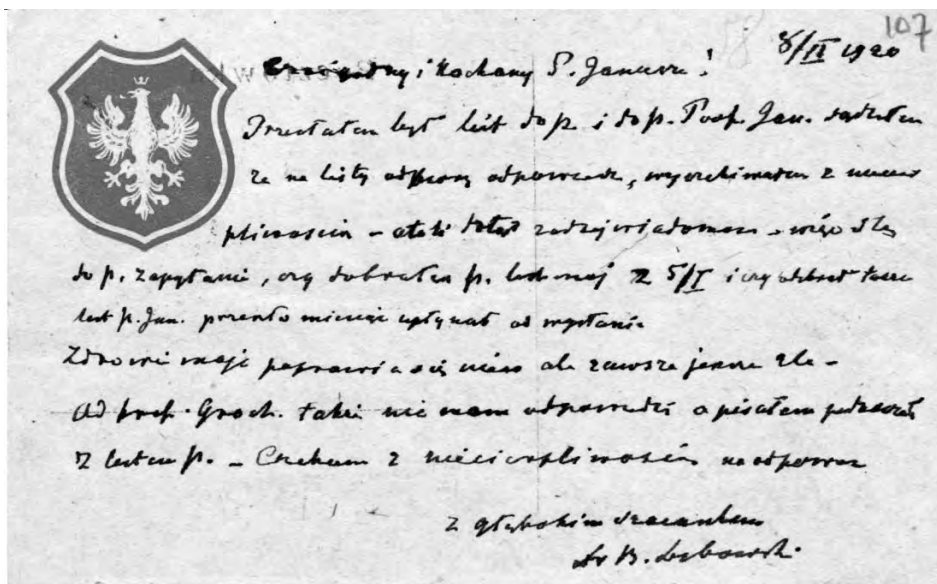 107
8/II 1920
Czcigodny i Kochany P. Januszu!
Przesłałem był list do p. i do p. Prof. Jan. sądziłem
że na listy odbiorę odpowiedź, wyczekiwałem z niecier
pliwością – a tak dotąd żadnej wiadomości – więc ślę
do p. zapytanie, czy odebrałeś p. list mój z 5/I i czy odebrał także
list p. Jan. przeszło miesiąc upłynął od wysłania
Zdrowie moje poprawia się nieco ale zawsze jeszcze źle –
Od prof. Groch. także nie mam odpowiedzi a pisałem
z listem p. – Czekam z niecierpliwością na odpowiedź
Z głębokim szacunkiem
Dr B.